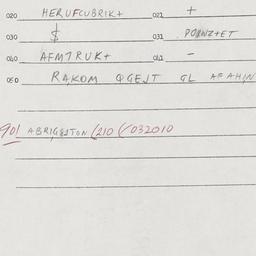 020 HERUFCUBRIK+ 021 +
030 $ 031 POUNZ+ET
040 AFMTRUK+ 041 -
050 RAKOM QGEJT GL AFAHIN
901 ABRIGESTON (210 (/032010